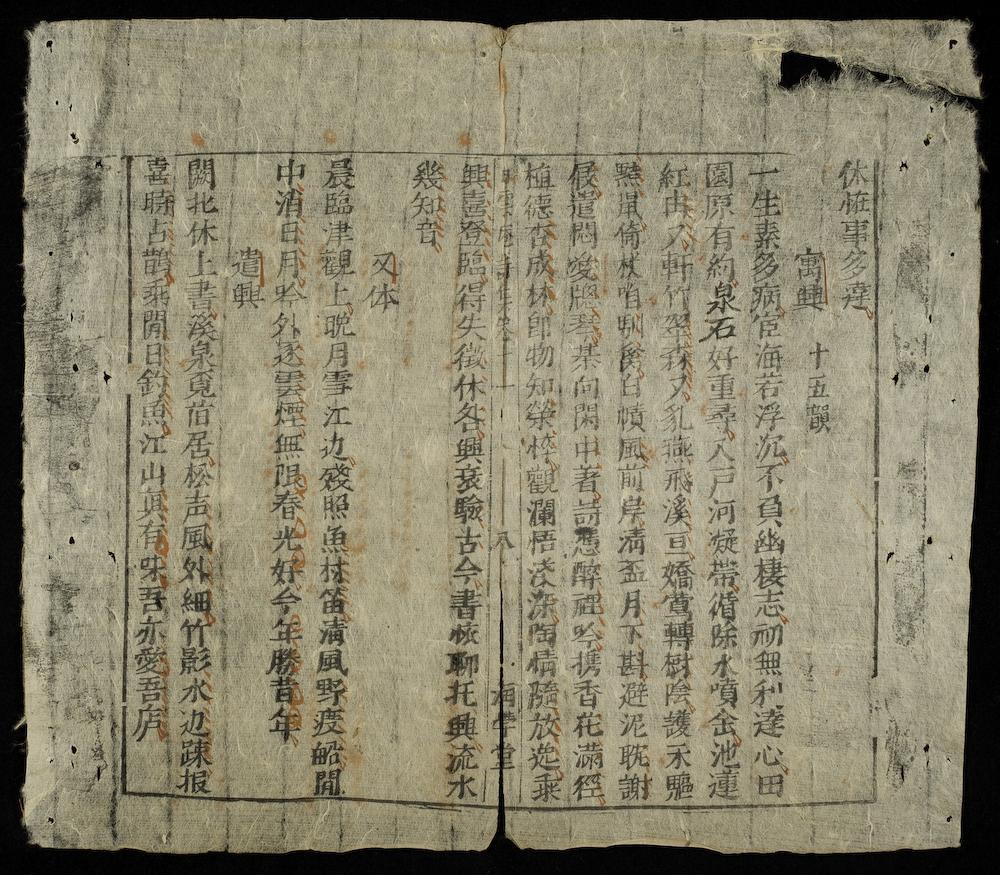 休恠事多違
寓興 十五韻
一生素多病宦海若浮沉不負幽棲志初無利達心田
園原有約泉石好重尋入戸河凝帶循除水噴金池蓮
紅由入軒竹翠森又乳燕飛溪亘嬌鶯轉樹陰護禾驅
倚杖咱馴白幘風前岸清盃月下斟避泥耽謝
屐遣悶愛牋琴某向閑中著詩憑醉裡吟携香花滿徑
植德杏成林即物知榮悴觀瀾悟淺深陶情隨放逸乘
八
海學堂
興喜登臨得失徵休咎興衰驗古今書核聊托興流水
幾知音
又体
晨臨津觀上晩月雪江边殘照魚村笛清風野渡船閒
中消日月吟外逐雲煙無限春光好今年勝昔年
遣興
闕北休上書溪泉覓旧居松声風外細竹影水边踈报
喜時占鵲乘閒日釣魚江山真有味吾亦愛吾庐